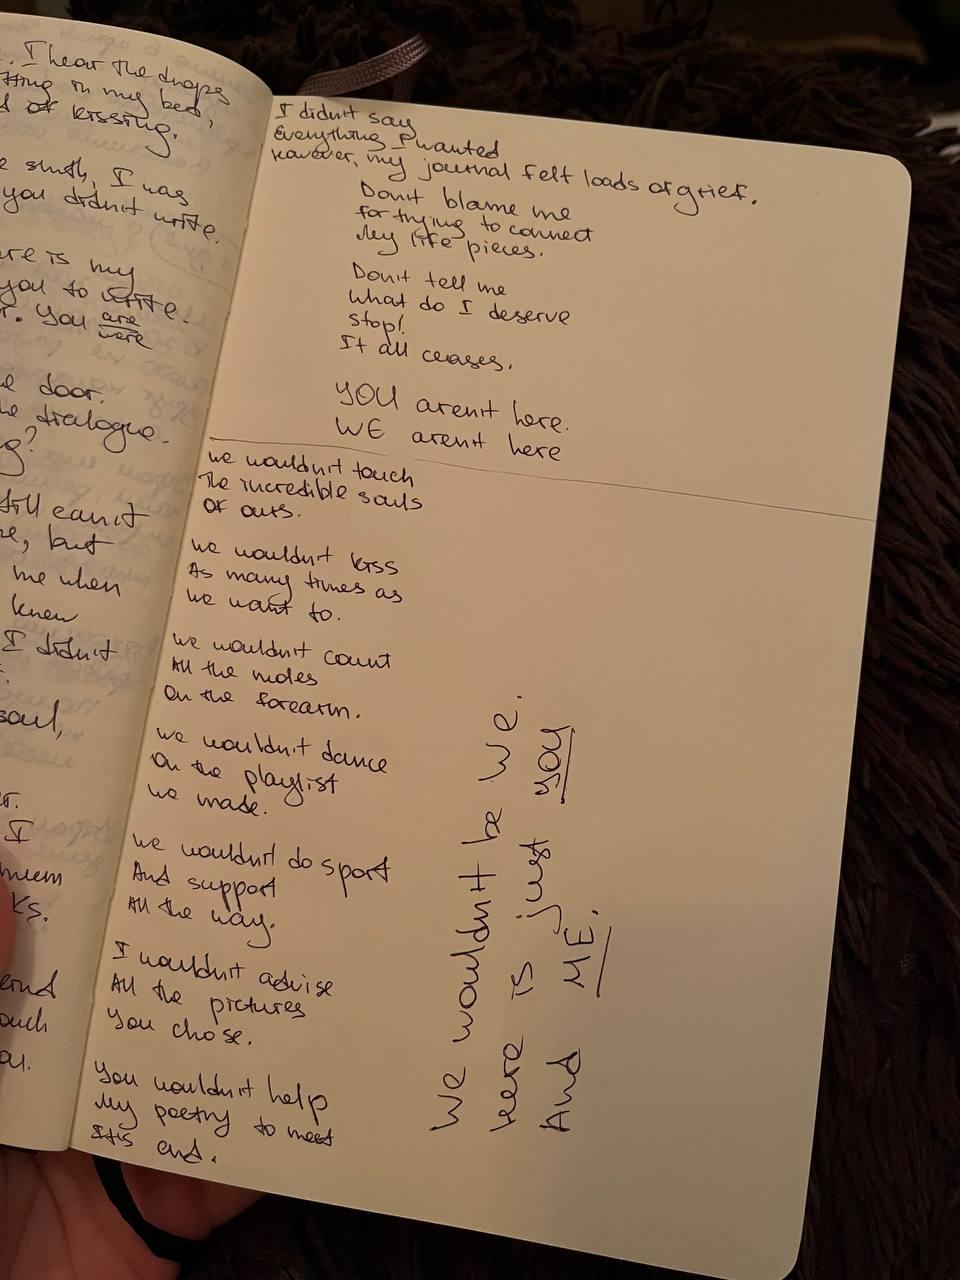 . I hear the drops
in my bed,
of kissing.
I was
you didn't write.
is my
you to write.
. You are
were
door.
dialogue.
?
still can't
, but
me when
knew
I didn't
soul,
I
I didn't say
Everything I wanted
However, my journal felt loads of grief.
Don't blame me
for trying to connect
My life pieces.
Don't tell me
What do I deserve
Stop!
It all ceases.
YOU aren't here.
WE aren't here
We wouldn't touch
The incredible souls
Of ours.
We wouldn't kiss
As many times as
We want to.
We wouldn't count
All the moles
On the forearm.
We wouldn't dance
On the playlist
We made.
We wouldn't do sport
And support
All the way.
I wouldn't advise
All the pictures
You chose.
You wouldn't help
My poetry to meet
It's end.
We wouldn't be we.
Here is just you
And ME.